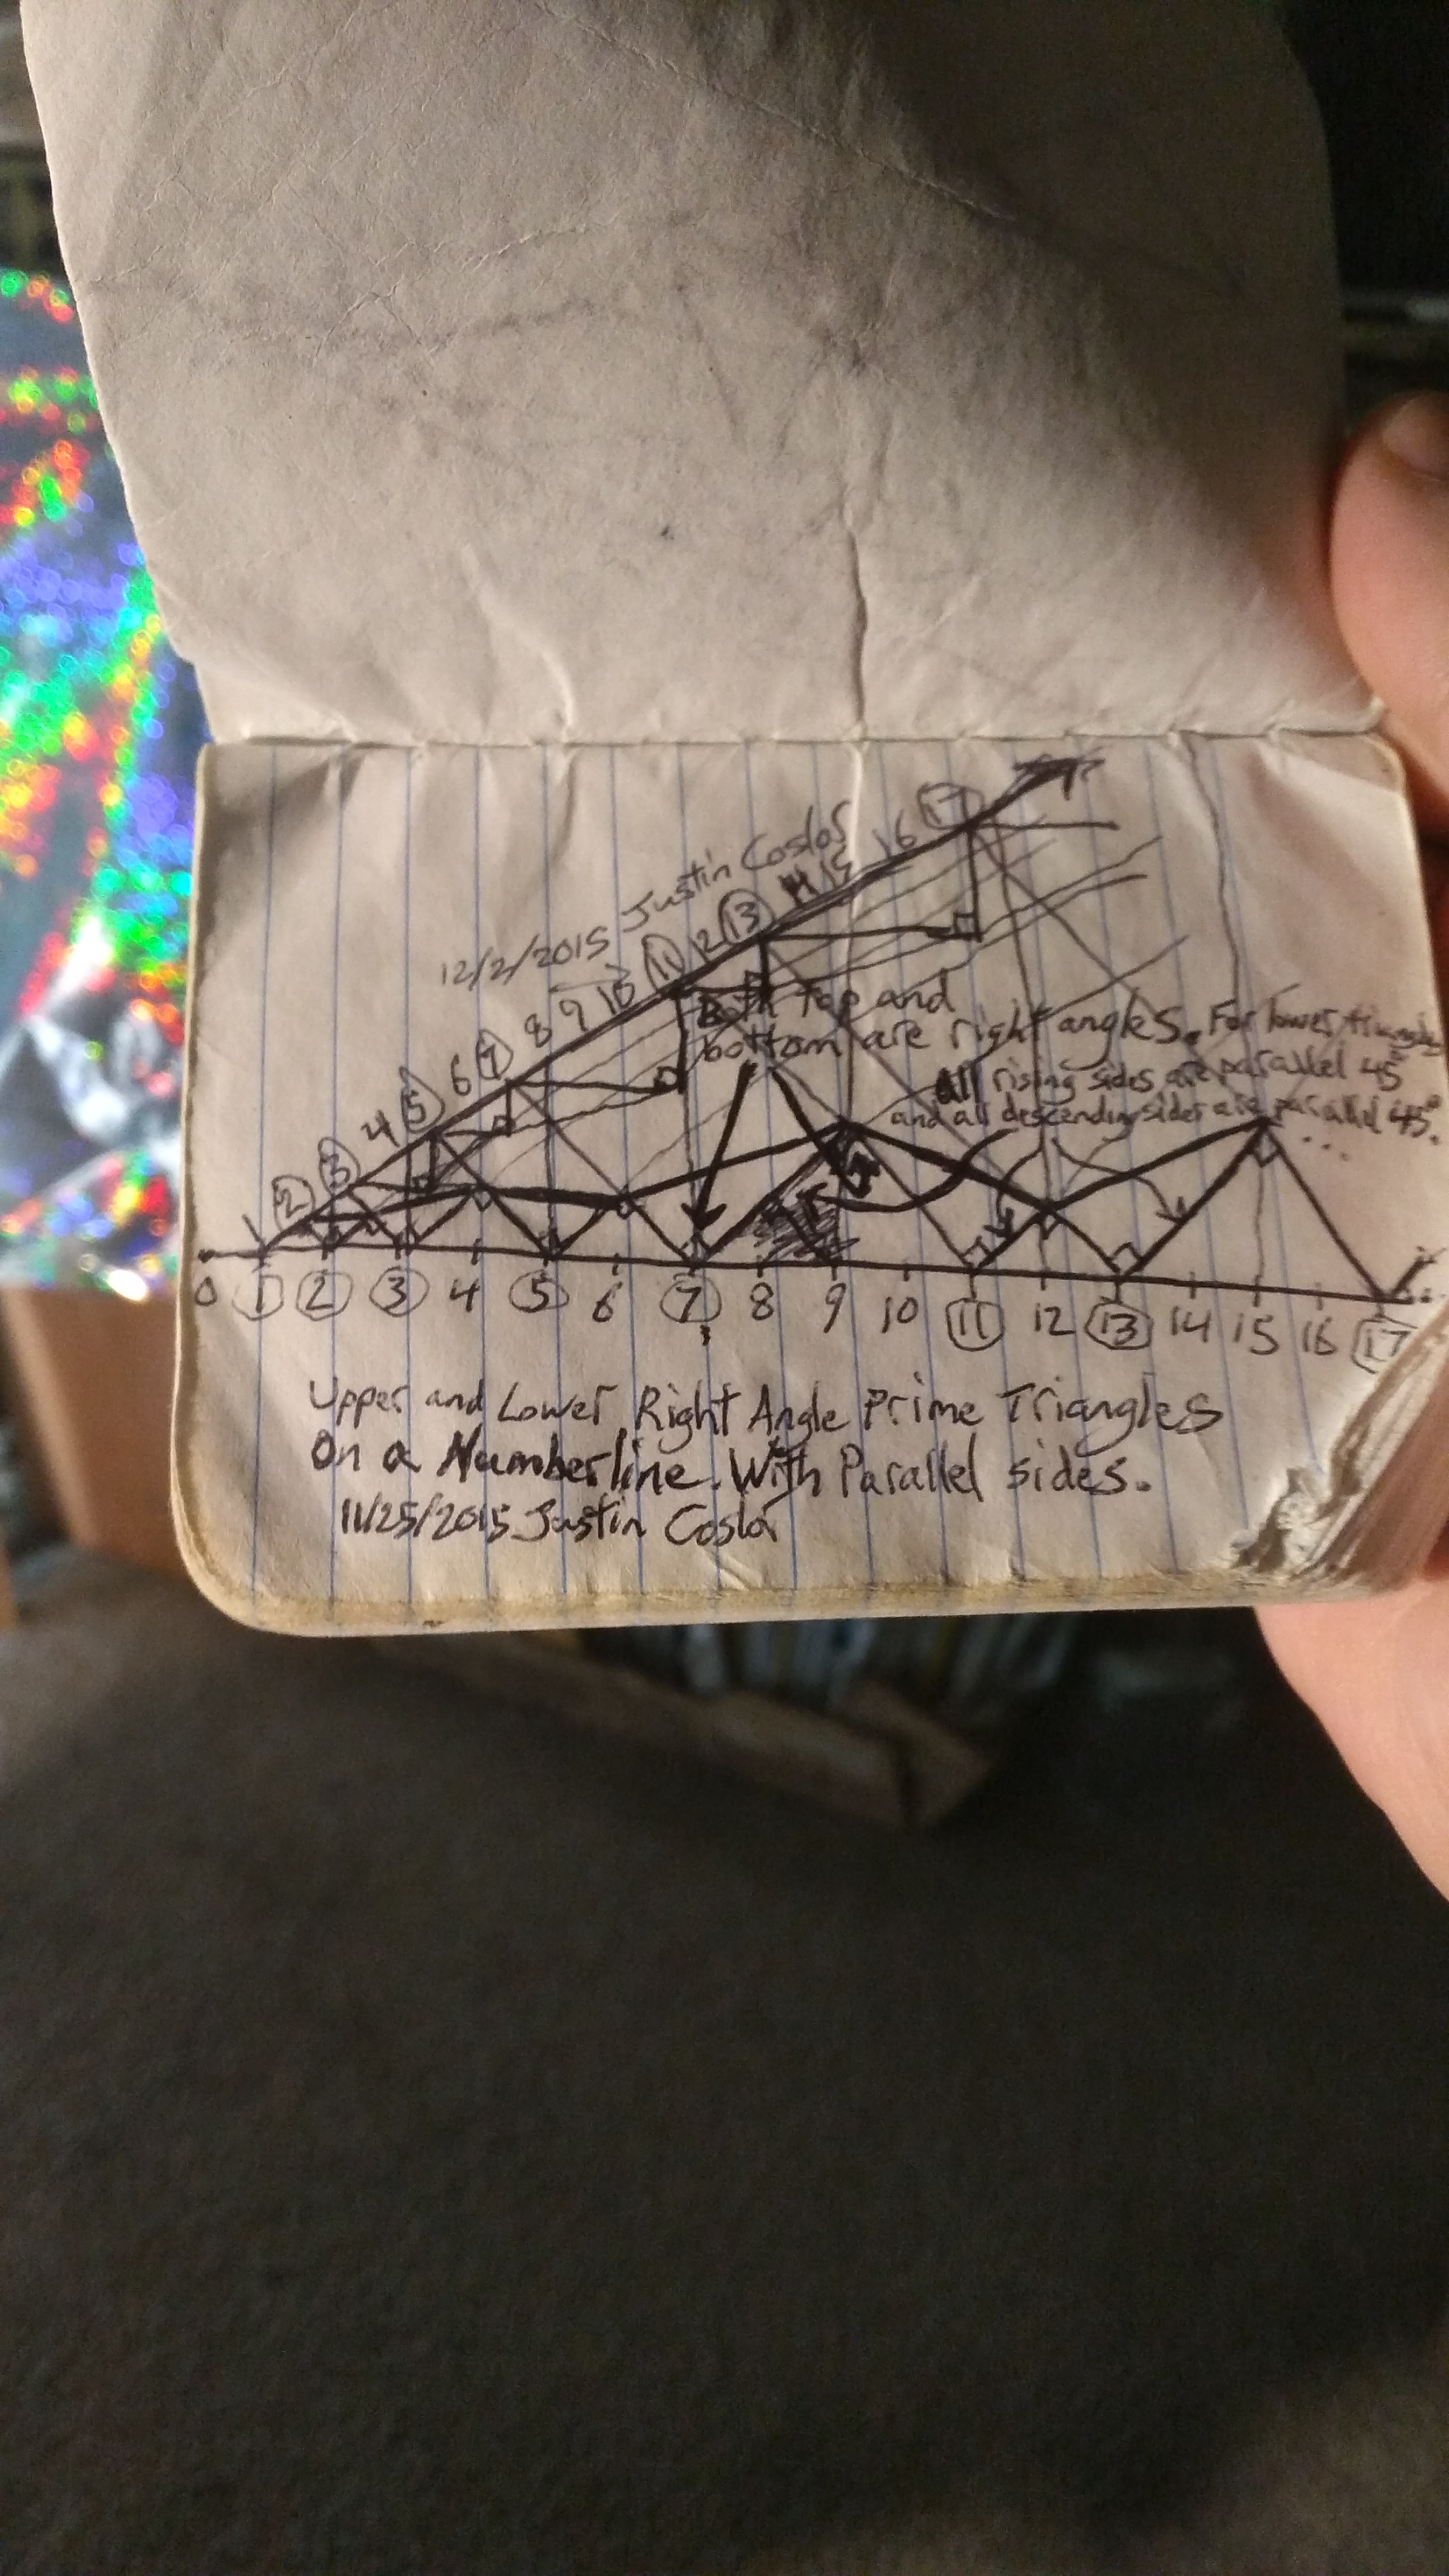 12/2/2015 Justin Coslor
1 2 3 4 5 6 7 8 9 10 11 12 13 14 15 16 17
Both top and
bottom are right angles. For lower triangles
All rising sides are parallel 45°
and all descending sides are parallel 45°.
...
0 1 2 3 4 5 6 7 8 9 10 11 12 13 14 15 16 17
Upper and Lower Right Angle Prime Triangles
On a Numberline. With Parallel sides.
11/25/2015 Justin Coslor